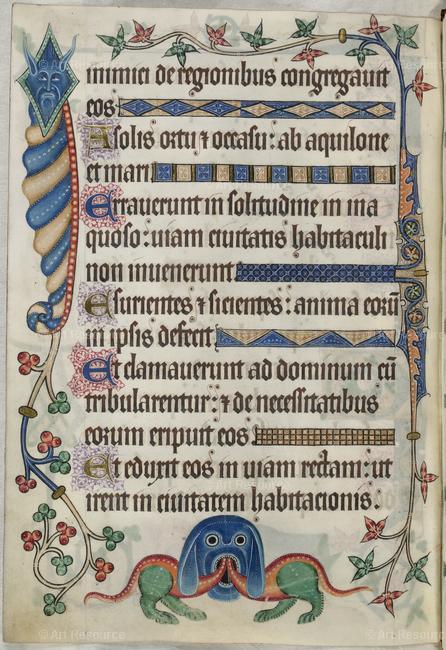 inimici de regionibus congregauit
eos
A solis ortu ⁊ occasu: ab aquilone
et mari
Errauerunt in solitudine in ina
quoso: uiam ciuitatis habitaculi
non inuenerunt
Esurientes ⁊ sicientes: anima eorū
in ipsis defecit.
Et clamauerunt ad dominum cū
tribularentur: ⁊ de necessitatibus
eorum eripuit eos.
Et eduxit eos in uiam rectam: ut
irent in ciuitatem habitacionis.
© Art Resource